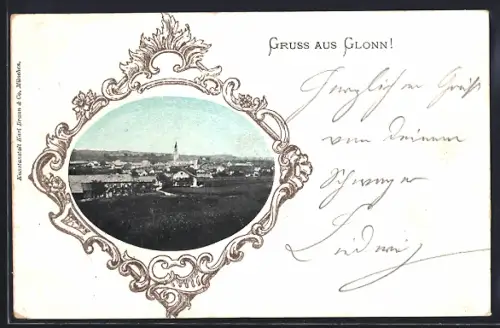 GRUSS AUS GLONN!
Herzlichen Gruß
von deinem
Schwager
Ludwig
Kunstanstalt Karl Braun & Co. München.